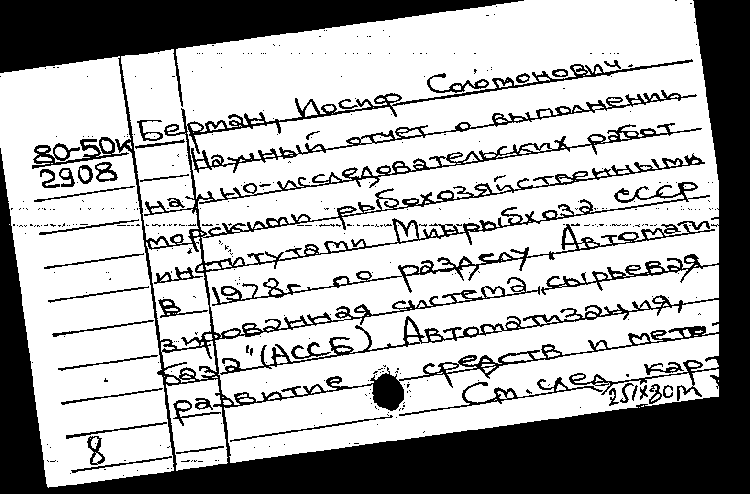 Берман, Иосиф Соломонович.
80-50к
2908
Научный отчет о выполнении
научно-исследовательских работ
морскими рыбохозяйственными
институтами Минрыбхоза СССР
в 1978г. по разделу „Автомати-
зированная система „сырьевая
база" (АССБ). Автоматизация,
развитие средств и мето-
См. след. карт
8